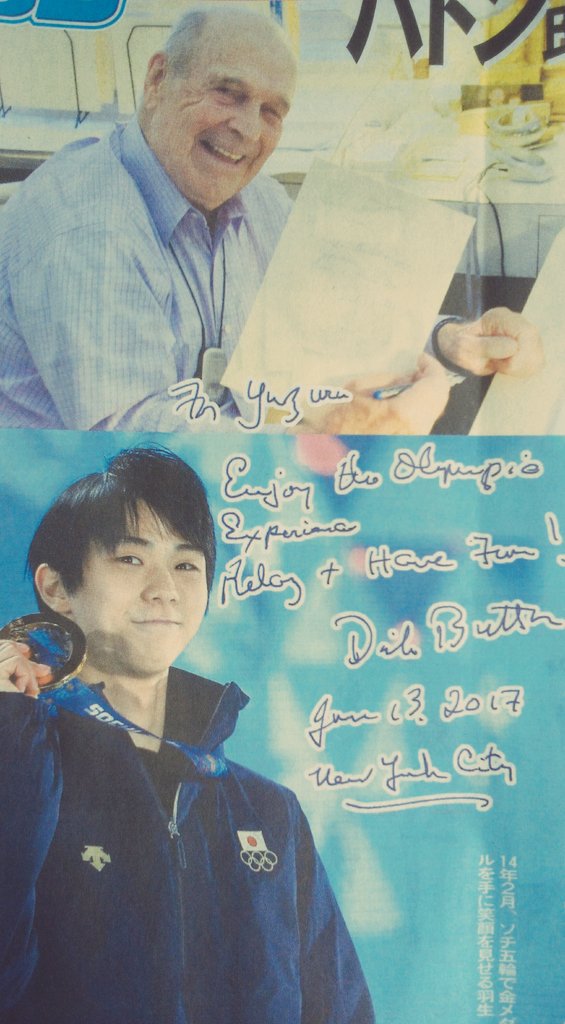 バトン
For Yuzuru
Enjoy the Olympic
Experience
Relax + Have Fun!
Dick Button
June 13. 2017
New York City
SOCHI
14年2月、ソチ五輪で金メダ
ルを手に笑顔を見せる羽生